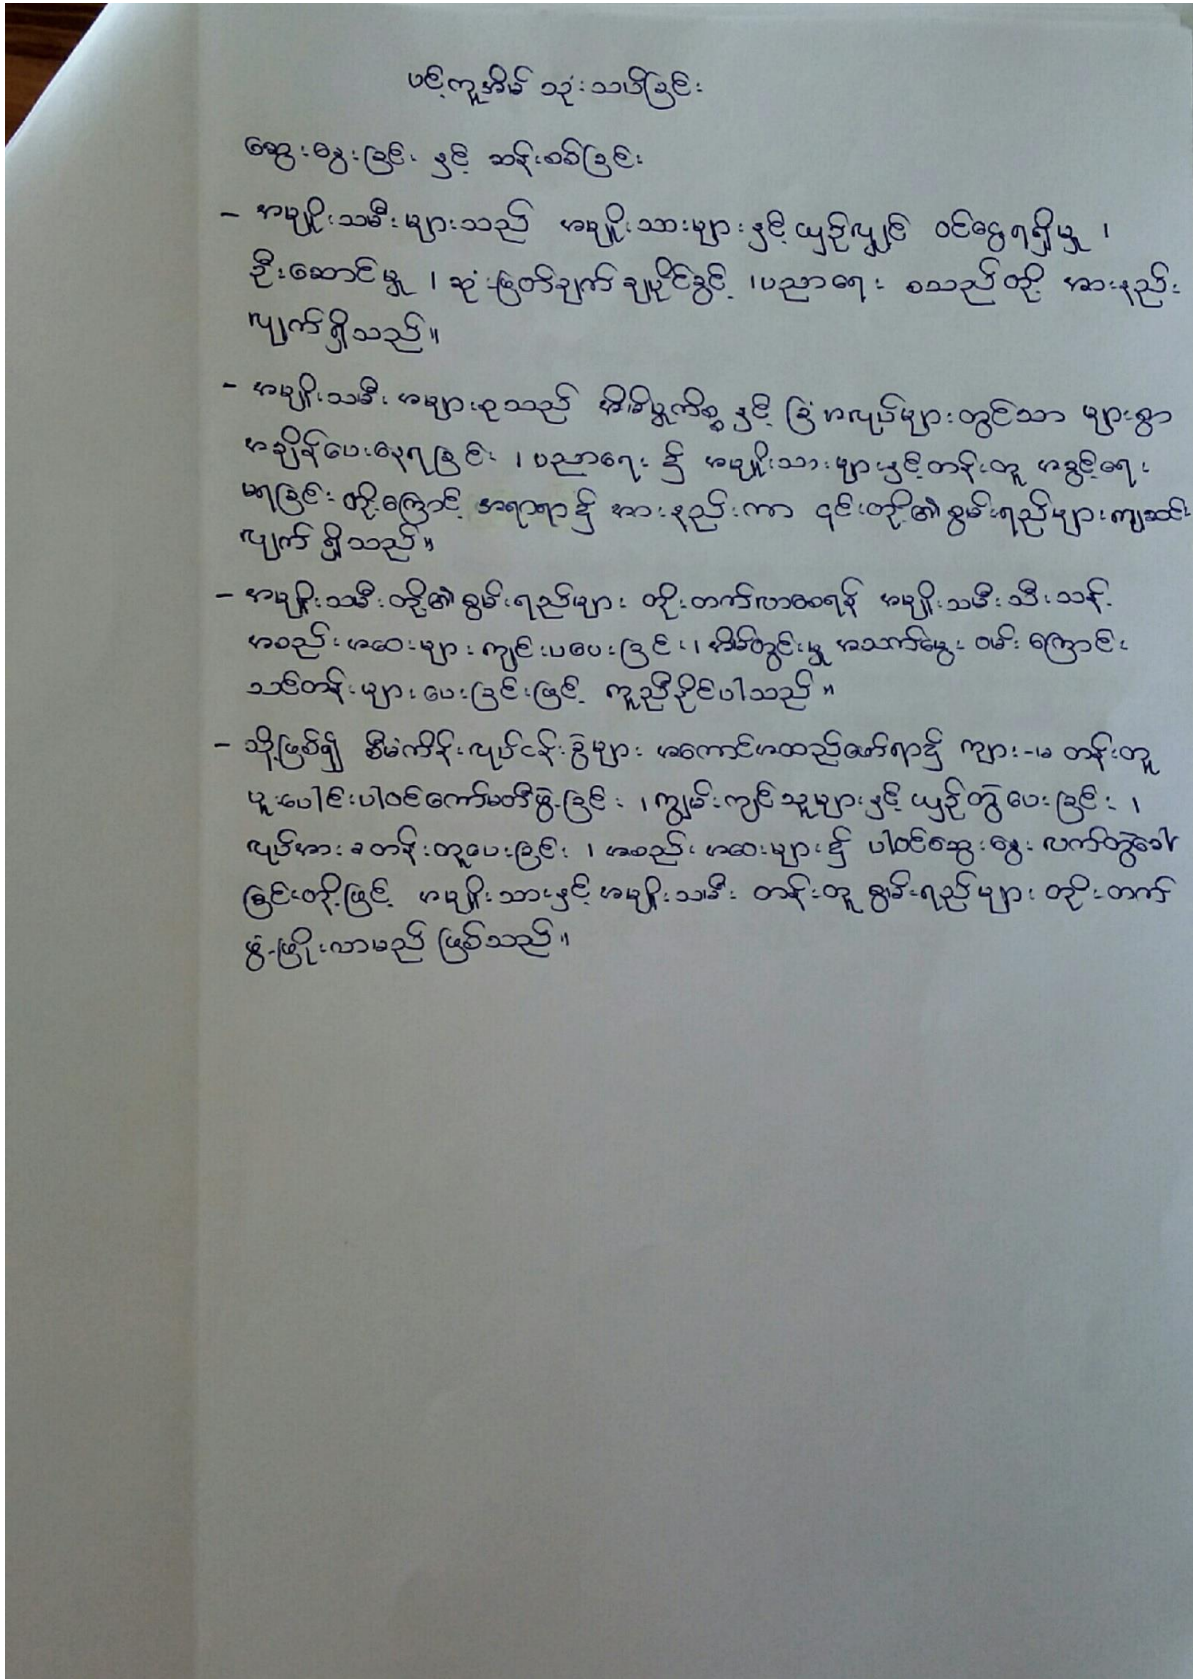 ပင့်ကူအိမ် သုံးသပ်ခြင်း
ဆွေးနွေးခြင်း နှင့် ဆန်းစစ်ခြင်း
- အမျိုးသမီးများသည် အမျိုးသားများနှင့် ယှဉ်လျှင် ဝင်ငွေရရှိမှု ၊
ဦးဆောင်မှု ၊ ဆုံးဖြတ်ချက်ချပိုင်ခွင့် ၊ ပညာရေး စသည်တို့ အားနည်း
လျက်ရှိသည်။
- အမျိုးသမီး အများစုသည် အိမ်မှုကိစ္စ နှင့် ခြံအလုပ်များတွင်သာ များစွာ
အချိန်ပေးနေရခြင်း ၊ ပညာရေး ၌ အမျိုးသားများနှင့်တန်းတူ အခွင့်ရေး
မရခြင်း တို့ကြောင့် အရာရာ၌ အားနည်းကာ ၎င်းတို့၏စွမ်းရည်များကျဆင်း
လျက် ရှိသည်။
- အမျိုးသမီးတို့၏စွမ်းရည်များ တိုးတက်လာစေရန် အမျိုးသမီးသီးသန့်
အစည်းအဝေးများ ကျင်းပပေးခြင်း ၊ အိမ်တွင်းမှု အသက်မွေး ဝမ်းကြောင်း
သင်တန်းများပေးခြင်းဖြင့် ကူညီနိုင်ပါသည်။
- သို့ဖြစ်၍ စီမံကိန်းလုပ်ငန်းခွဲများ အကောင်အထည်ဖော်ရာ၌ ကျား-မ တန်းတူ
ပူးပေါင်းပါဝင်ကော်မတီဖွဲ့ခြင်း ၊ ကျွမ်းကျင်သူများနှင့် ယှဉ်တွဲပေးခြင်း ၊
လုပ်အားခတန်းတူပေးခြင်း ၊ အစည်းအဝေးများ၌ ပါဝင်ဆွေးနွေး လက်တွဲခေါ်
ခြင်းတို့ဖြင့် အမျိုးသားနှင့်အမျိုးသမီး တန်းတူ စွမ်းရည်များ တိုးတက်
ဖွံ့ဖြိုးလာမည် ဖြစ်သည်။